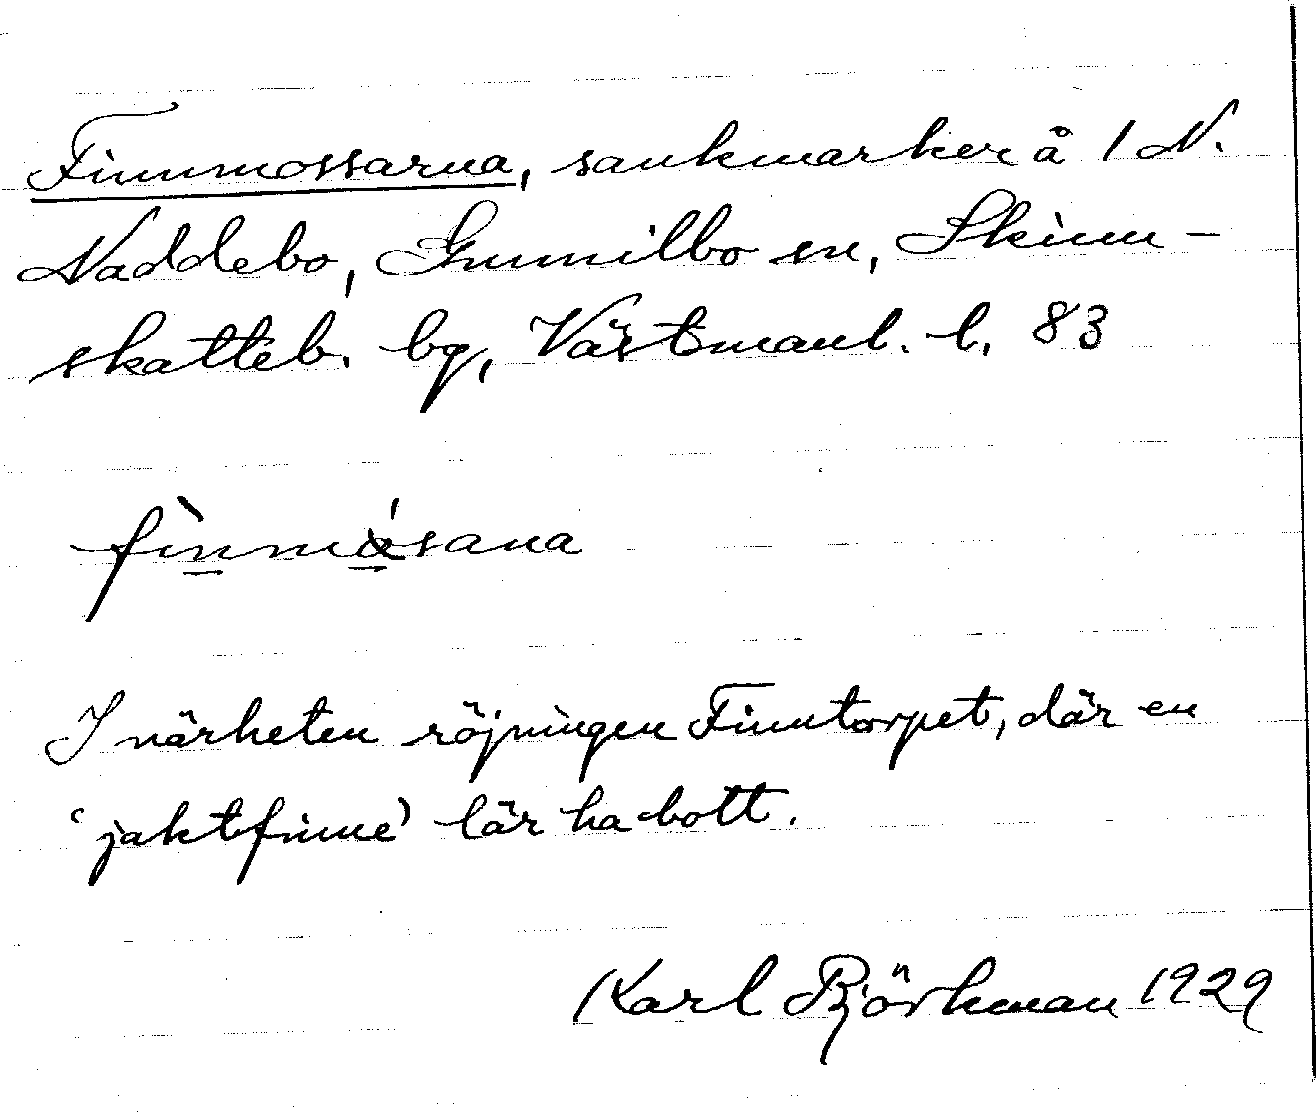 Finnmossarna, sankmarker å 1 N.
Naddebo, Gunnilbo sn, Skinn-
skatteb. bg, Västmanl. l. 83
fìnmósana
I närheten röjningen Finntorpet, där en
'jaktfinne' lär ha bott.
Karl Björkman 1929